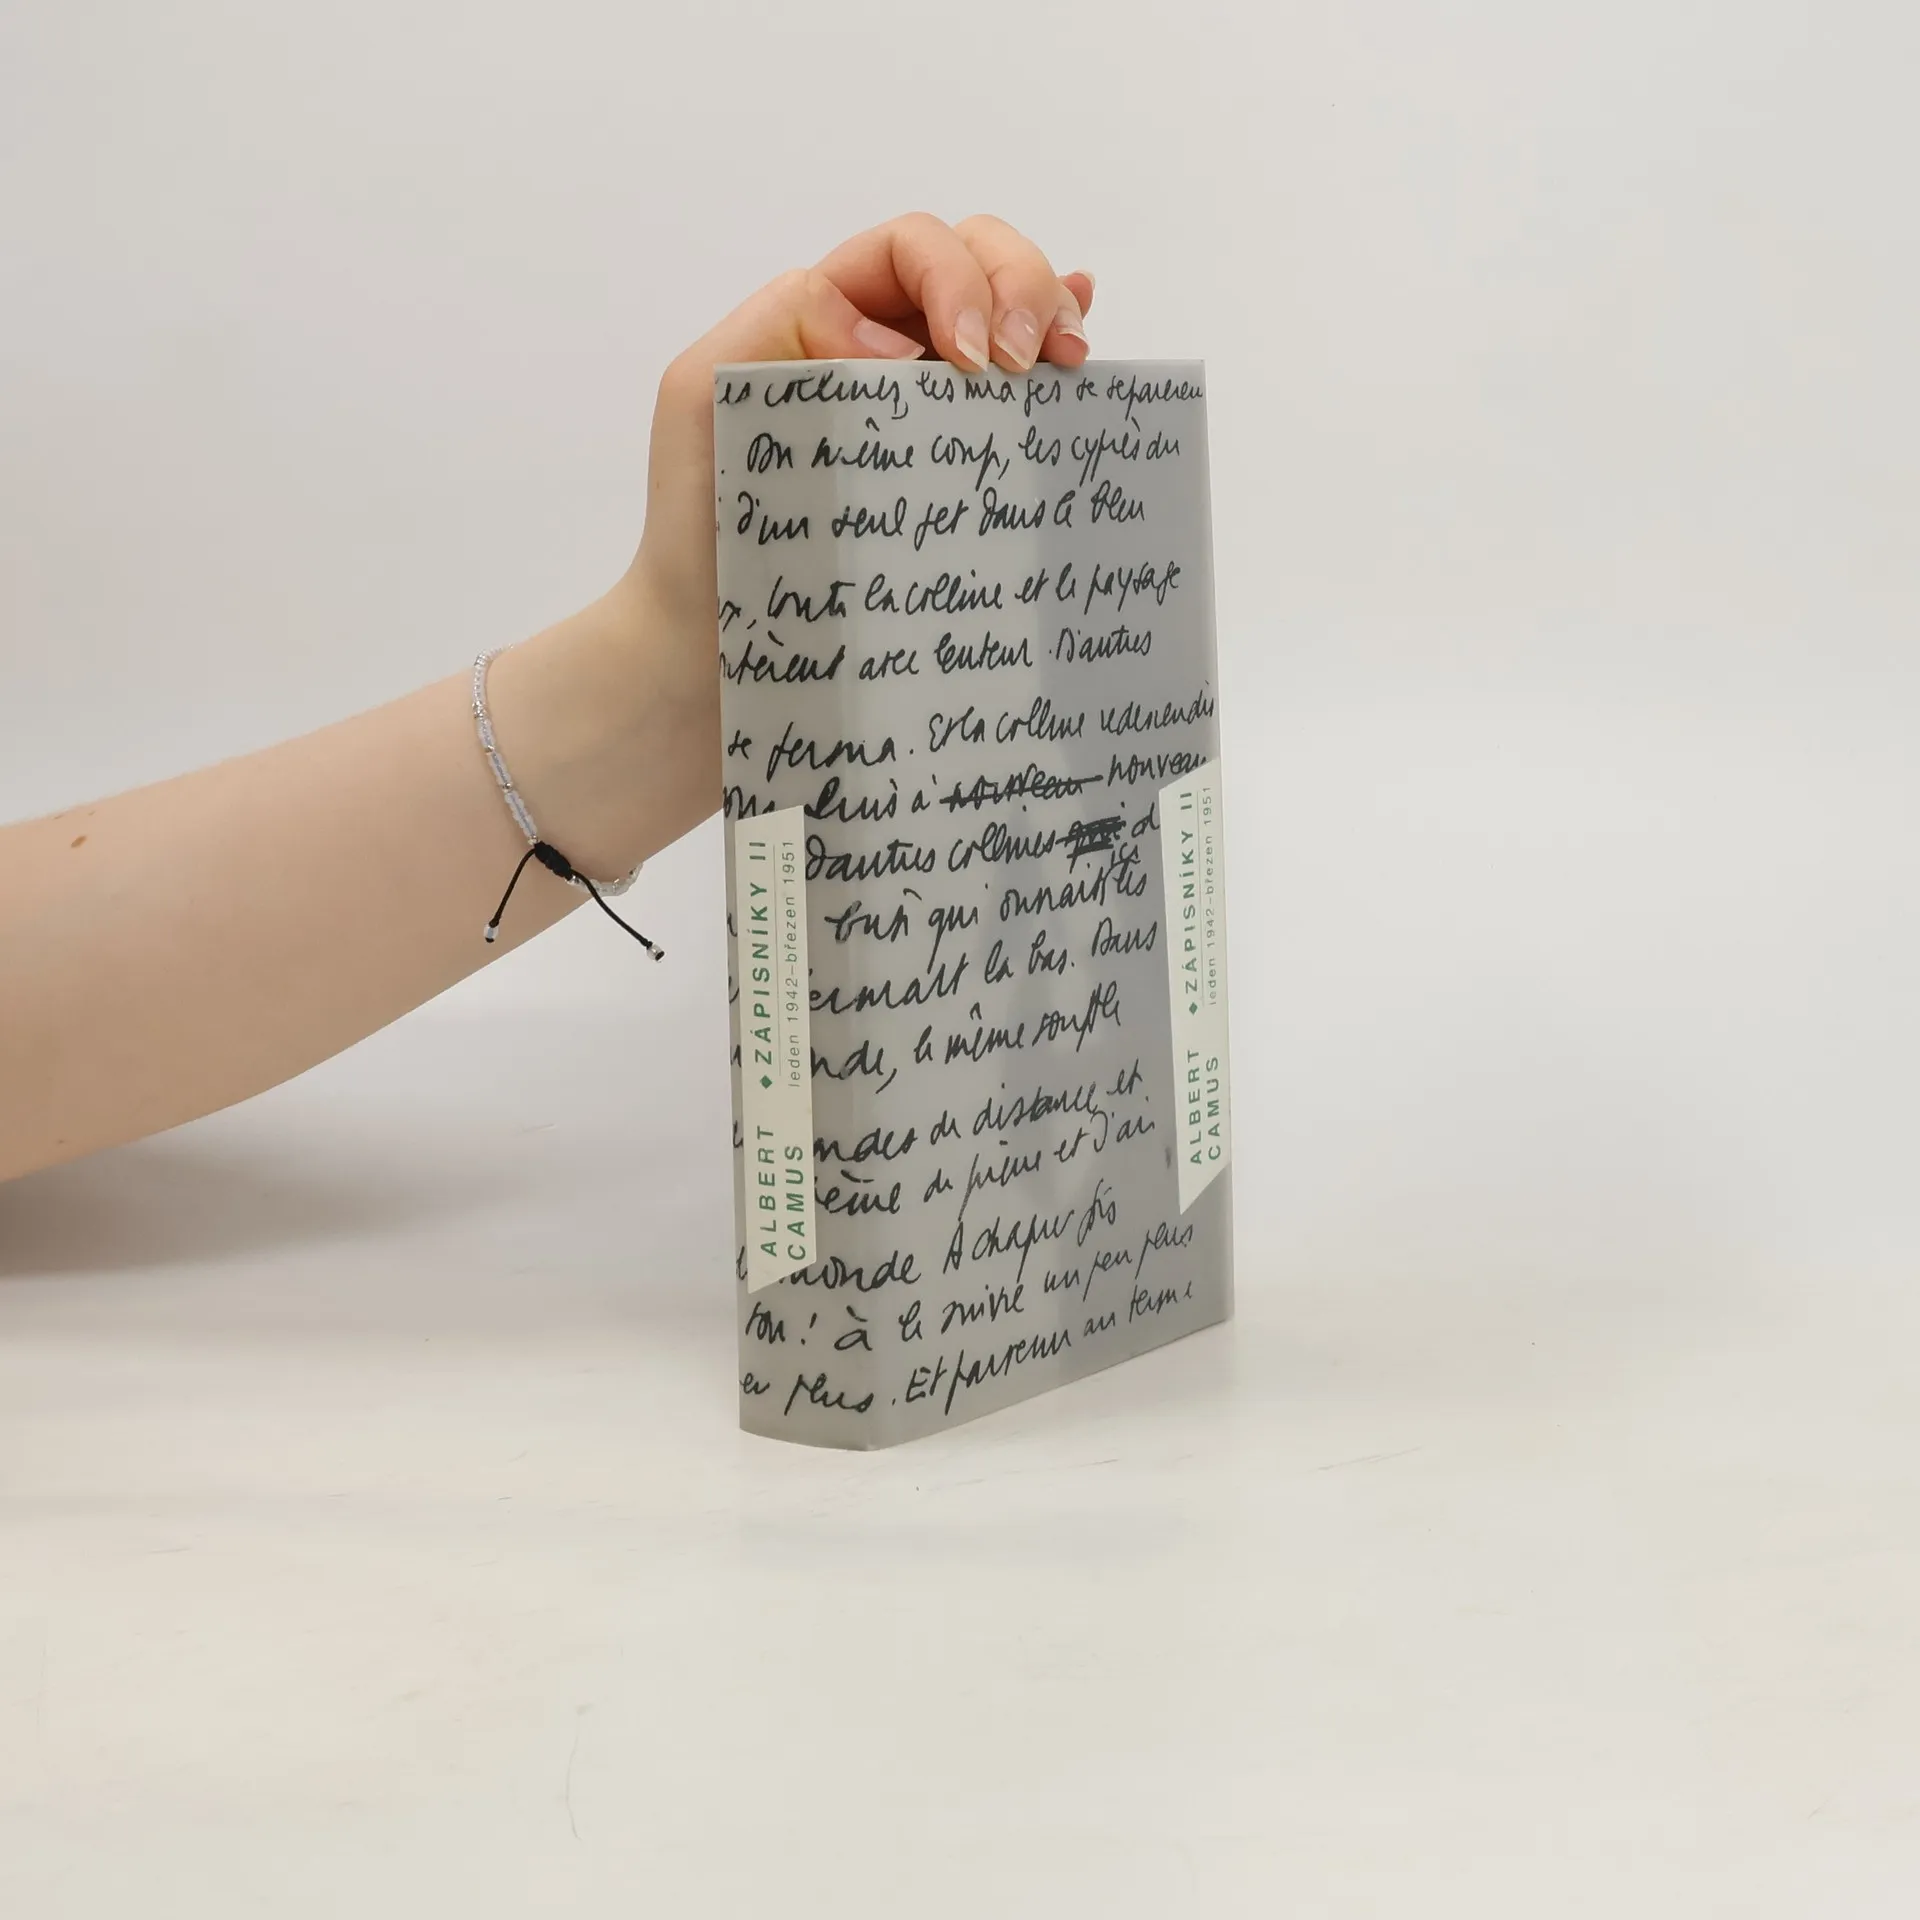 es collines, les nuages se séparèren
. Du même coup, les cyprès du
d'un seul jet dans le bleu
, toute la colline et le paysage
ntèrent avec lenteur. D'autres
se ferma. Et la colline redescendit
puis à nouveau nouveau
d'autres collines qui d
qui ou naiss les
là bas. Dans
nde, le même souffle
ndes de distance et
de et j'ai
monde A chaque fois
à le suivre un peu plus
plus. Et parvenu au terme
ALBERT
CAMUS
◆ ZÁPISNÍKY II
leden 1942–březen 1951
ALBERT
CAMUS
◆ ZÁPISNÍKY II
leden 1942–březen 1951